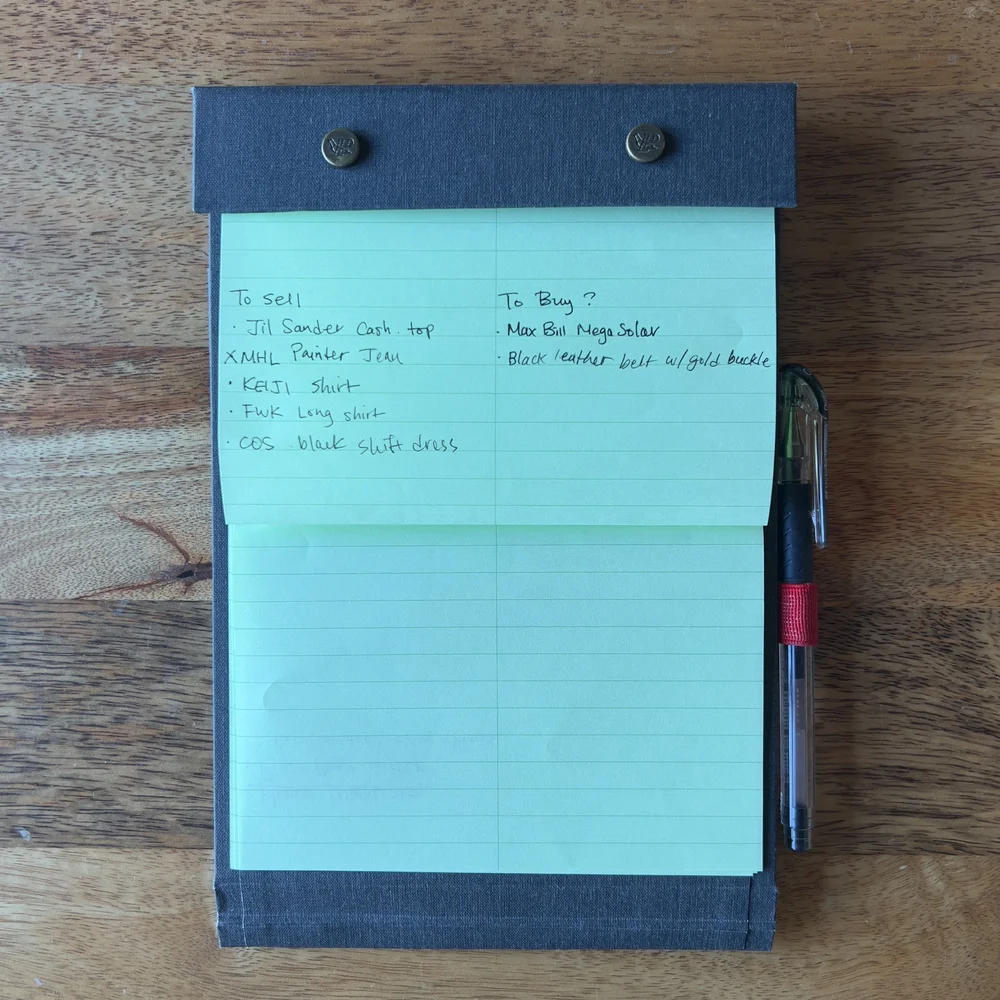 To sell
· Jil Sander Cash. top
X MHL Painter Jean
· KEIJI shirt
· FWK Long shirt
· COS black shift dress
To Buy?
· Max Bill Mega Solar
· Black leather belt w/ gold buckle